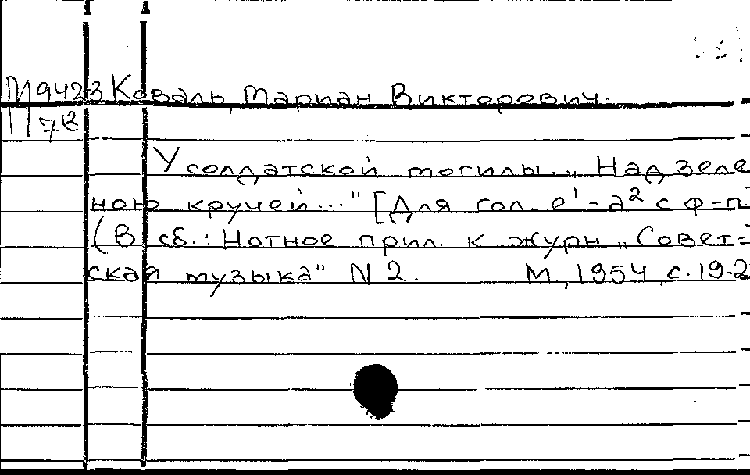 М9423 Коваль, Мариан Викторович.
П78
У солдатской могилы. „Над зеле
ною кручей..." [Для гол. e¹-a² с ф-п
(В сб.: Нотное прил. к журн. „Совет-
ская музыка" N 2. М., 1954, с. 19-2